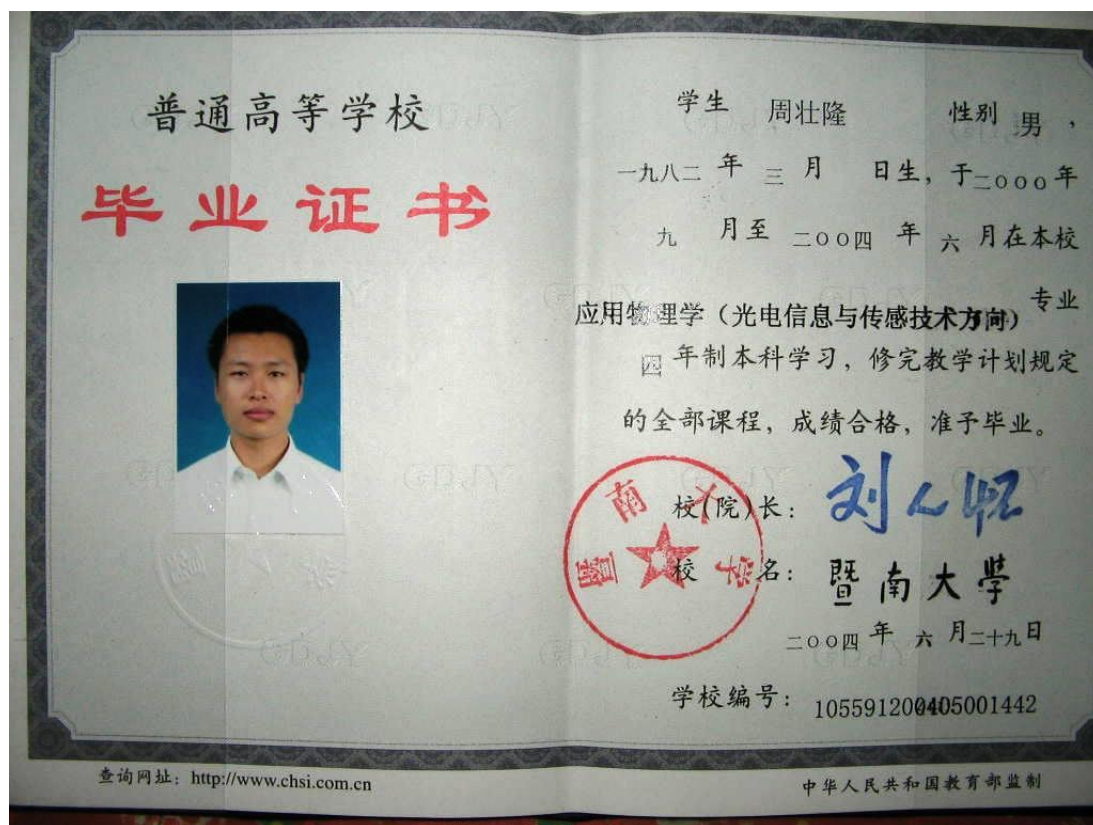 普通高等学校
毕业证书
学生 周壮隆 性别 男，
一九八二 年 三 月 日生，于二〇〇〇年
九 月至 二〇〇四 年 六 月在本校
应用物理学（光电信息与传感技术方向）专业
四 年制本科学习，修完教学计划规定
的全部课程，成绩合格，准予毕业。
校(院)长：刘人怀
校 名：暨南大学
暨南大学
二〇〇四 年 六 月二十九日
学校编号：105591200405001442
查询网址：http://www.chsi.com.cn
中华人民共和国教育部监制